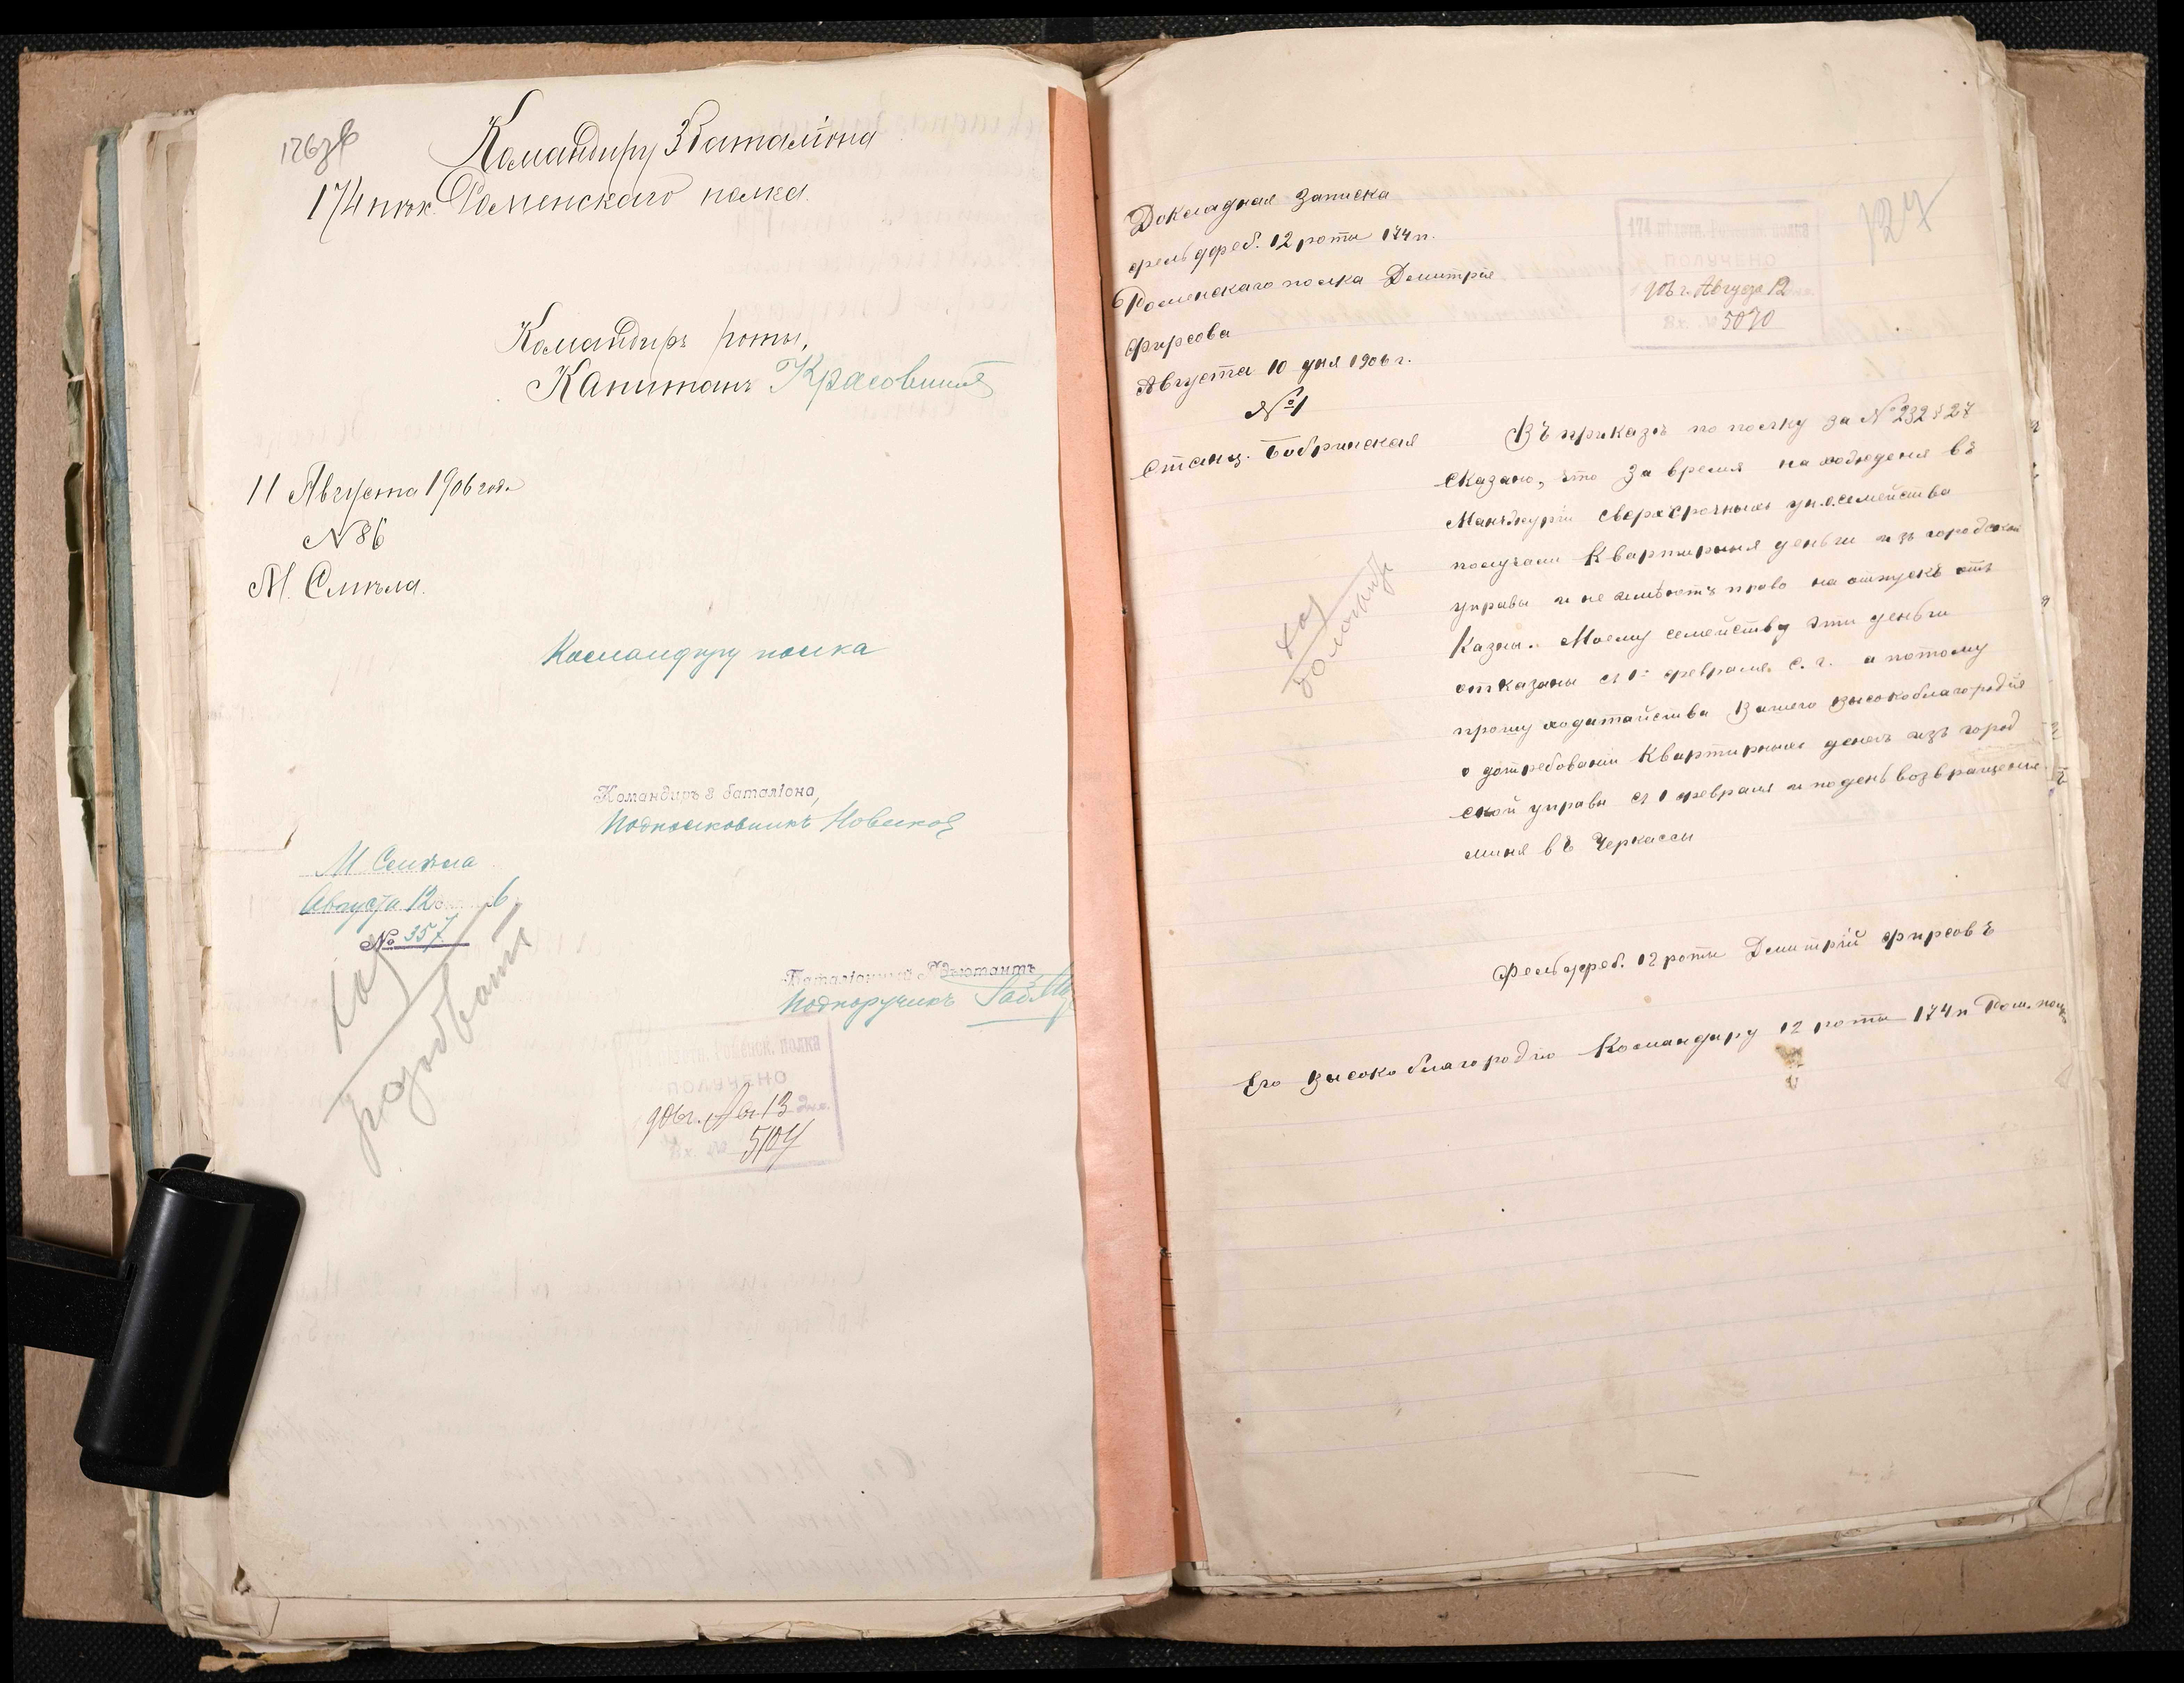 126 об
Командиру 3 баталіона
174 пѣх. Роменскаго полка.
Командиръ роты,
Капитанъ Красовскій
11 Августа 1906 года
N 86
М. Смѣла.
Командиру полка
Командиръ 3 баталіона,
Подполковникъ
М. Смѣла
Августа 12 6
№ 357
Баталіонный Адъютантъ
Подпоручикъ
полка
ПОЛУЧЕНО
906 г. Авг 13 дня.
Вх. № 5104
127
174 пѣхотн. Роменск. полка
ПОЛУЧЕНО
1906 г. Августа 12 дня
Вх. № 5070
Докладная Записка
фельдфеб. 12 роты 174 п.
Роменскаго полка Дмитрія
Фирсова
Августа 10 дня 1906 г.
№ 1
Станц. Бобринская
Въ приказѣ по полку за № 232 § 27
сказано, что за время нахождения въ
Манчжуріи сверхсрочныхъ ун.о. семейства
получали Квартирныя деньги изъ городской
управы и не имѣютъ право на отпускъ отъ
Казны. Моему семейству эти деньги
отказаны съ 1 февраля с. г. а потому
прошу ходатайства Вашего высокоблагородія
о дотребованіи Квартирныхъ денегъ изъ город
ской управы съ 1 февраля и по день возвращения
меня въ Черкассы
Фельдфеб. 12 роты Дмитрій Фирсовъ
Его высокоблагородію Командиру 12 роты 174 п Ром. пол